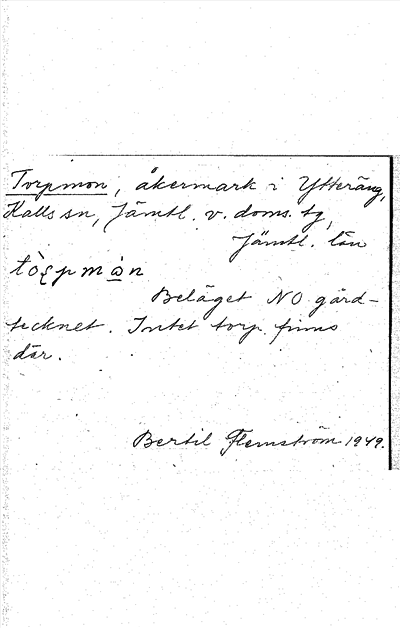 Torpmon, åkermark i Ytteräng,
Kalls sn, Jämtl. v. doms. tg,
Jämtl. län
Beläget NO gård-
tecknet. Intet torp finns
där.
Bertil Flemström 1949.